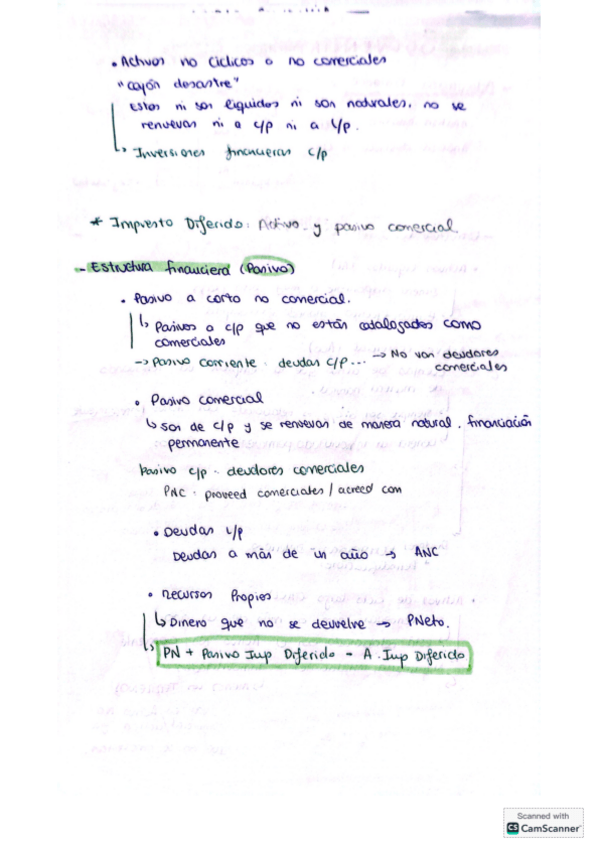 • Activos no cíclicos o no comerciales
"cajón desastre"
Estos ni son líquidos ni son naturales, no se
renuevan ni a c/p ni a l/p.
↳ Inversiones financieras c/p
* Impuesto Diferido: Activo y pasivo comercial
- Estructura financiera (Pasivo)
• Pasivo a corto no comercial.
↳ Pasivos a c/p que no están catalogados como
comerciales
-> Pasivo corriente: deudas c/p... -> No van deudores
comerciales
• Pasivo comercial
↳ son de c/p y se renuevan de manera natural. financiación
permanente
Pasivo c/p: deudores comerciales
PNC: proveed comerciales / acreed com
• Deudas l/p
Deudas a más de un año -> ANC
• Recursos Propios
↳ Dinero que no se devuelve -> PNeto.
↳ PN + Pasivo Imp Diferido - A. Imp Diferido
Scanned with
CS CamScanner